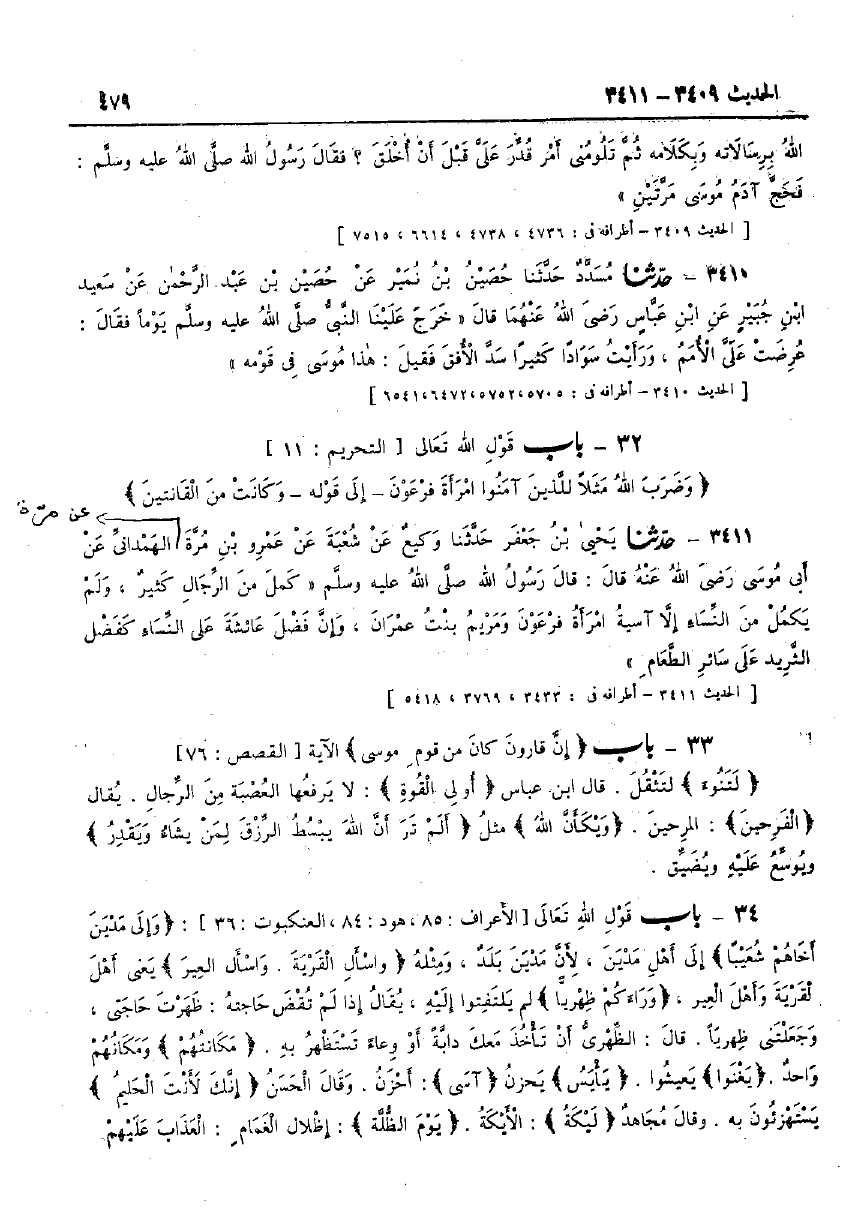 الحديث ٣٤٠٩ – ٣٤١١ ٤٧٩
اللهُ بِرِسَالَاته وَبِكَلَامه ثُمَّ تَلُومُنى أَمْر قُدِّرَ عَلَىَّ قَبْلَ أَنْ أُخْلَقَ ؟ فقَالَ رَسُولُ الله صلَّى اللهُ عليه وسلَّم :
فَحَجَّ آدَمُ مُوسَى مَرَّتَيْنِ »
[ الحديث ٣٤٠٩ – أطرافه فى : ٤٧٣٦ ، ٤٧٣٨ ، ٦٦١٤ ، ٧٥١٥ ]
٣٤١٠ – حدّثنا مُسَدَّدٌ حَدَّثَنا حُصَيْنُ بْنُ نُمَيْر عَنْ حُصَيْنِ بْن عَبْد الرَّحْمٰن عَنْ سَعيد
ابْنِ جُبَيْرٍ عَنِ ابْنِ عَبَّاسٍ رَضىَ اللهُ عَنْهُمَا قالَ « خَرَجَ عَلَيْنَا النَّبىُّ صلَّى اللهُ عليه وسلَّم يَوْماً فقَالَ :
عُرِضَتْ عَلَىَّ الْأُمَمُ ، وَرَأَيْتُ سَوَادًا كَثيرًا سَدَّ الْأُفقَ فَقيلَ : هٰذا مُوسَى فى قَوْمه »
[ الحديث ٣٤١٠ – أطرافه فى : ٥٧٠٥،٥٧٥٢،٦٤٧٢،٦٥٤١ ]
٣٢ – باب قَوْلِ الله تَعَالى [ التحريم : ١١ ]
﴿ وَضَرَبَ اللهُ مَثَلاً للَّذينَ آمَنُوا امْرَأَةَ فرْعَوْنَ – إلَى قَوْله – وَكَانَتْ منَ الْقَانتينَ ﴾
عن مرّة
٣٤١١ – حدّثنا يَحْيىٰ بْنُ جَعْفَر حَدَّثَنا وَكيعٌ عَنْ شُعْبَةَ عَنْ عَمْرِو بْنِ مُرَّةَ الهَمْدانىِّ عَنْ
أَبى مُوسَى رَضىَ اللهُ عَنْهُ قالَ : قالَ رَسُولُ الله صلَّى اللهُ عليه وسلَّم « كَملَ منَ الرِّجَال كَثيرٌ ، وَلَمْ
يَكمُلْ منَ النِّسَاءِ إلَّا آسيةُ امْرَأَةُ فرْعَوْنَ وَمَرْيمُ بنْتُ عمْرَانَ ، وَإنَّ فَضْلَ عَائشَةَ عَلى النِّسَاءِ كَفَضْل
الثَّرِيد عَلَى سَائرِ الطَّعَامِ »
[ الحديث ٣٤١١ – أطرافه فى : ٣٤٣٣ ، ٣٧٦٩ ، ٥٤١٨ ]
٣٣ – باب ﴿ إنَّ قارونَ كانَ من قومِ موسى ﴾ الآية [ القصص : ٧٦]
﴿ لَتَنُوءُ ﴾ لَتثْقُلُ . قال ابن عباس ﴿ أُولى الْقُوةِ ﴾ : لا يَرفعُها العُصْبَة مِنَ الرِّجالِ . يُقال
﴿الْفَرِحينَ﴾ : المرِحينَ . ﴿وَيْكَأَنَّ اللهَ ﴾ مثلُ ﴿ أَلمْ تَرَ أَنَّ اللهَ يبْسُطُ الرِّزْقَ لِمَنْ يشَاءُ وَيَقْدِرُ ﴾
ويُوَسِّعُ عَلَيْهِ ويُضَيِّقُ .
٣٤ – باب قَوْلِ اللهِ تَعَالَى [ الأعراف : ٨٥ ، هود : ٨٤ ، العنكبوت : ٣٦ ] : ﴿وَإلَى مَدْيَنَ
أَخَاهُمْ شُعَيْبًا﴾ إلَى أَهْلِ مَدْيَنَ ، لِأَنَّ مَدْيَنَ بَلَدٌ ، وَمِثْلهُ ﴿ واسْأَلِ الْقَرْيَةَ . وَاسْأَل العِيرَ ﴾ يَعْنى أَهْلَ
لْقَرْيَة وَأَهْلَ الْعِير ، ﴿وَرَاءَكُمْ ظِهْرِيًّا﴾ لم يلتَفِتوا إلَيْهِ ، يُقَالُ إذَا لَمْ تُقْضَ حَاجتهُ : ظَهَرْتَ حَاجَتى ،
وَجَعَلْتَنى ظِهرياً . قالَ : الظِّهْرىُّ أَنْ تَأْخُذَ مَعكَ دابَّةً أَوْ وِعاءً تَسْتَظْهِرُ بهِ . ﴿ مَكَانتُهُمْ ﴾ وَمَكَانُهُمْ
وَاحدٌ . ﴿يَغْنَوْا﴾ يَعيشُوا . ﴿ يَأْيَسُ ﴾ يَحزنُ ﴿ آسَى ﴾ : أَحْزَنُ . وَقَالَ الْحَسَنُ ﴿ إنَّكَ لَأَنْتَ الْحَليمُ ﴾
يَسْتَهْزِئُونَ به . وقالَ مُجَاهدٌ ﴿ لَيْكَةُ ﴾ : الْأَيْكَةُ . ﴿ يَوْمَ الظُّلَّة ﴾ : إظْلَال الْغَمَامِ : الْعَذَابَ عَلَيْهمْ